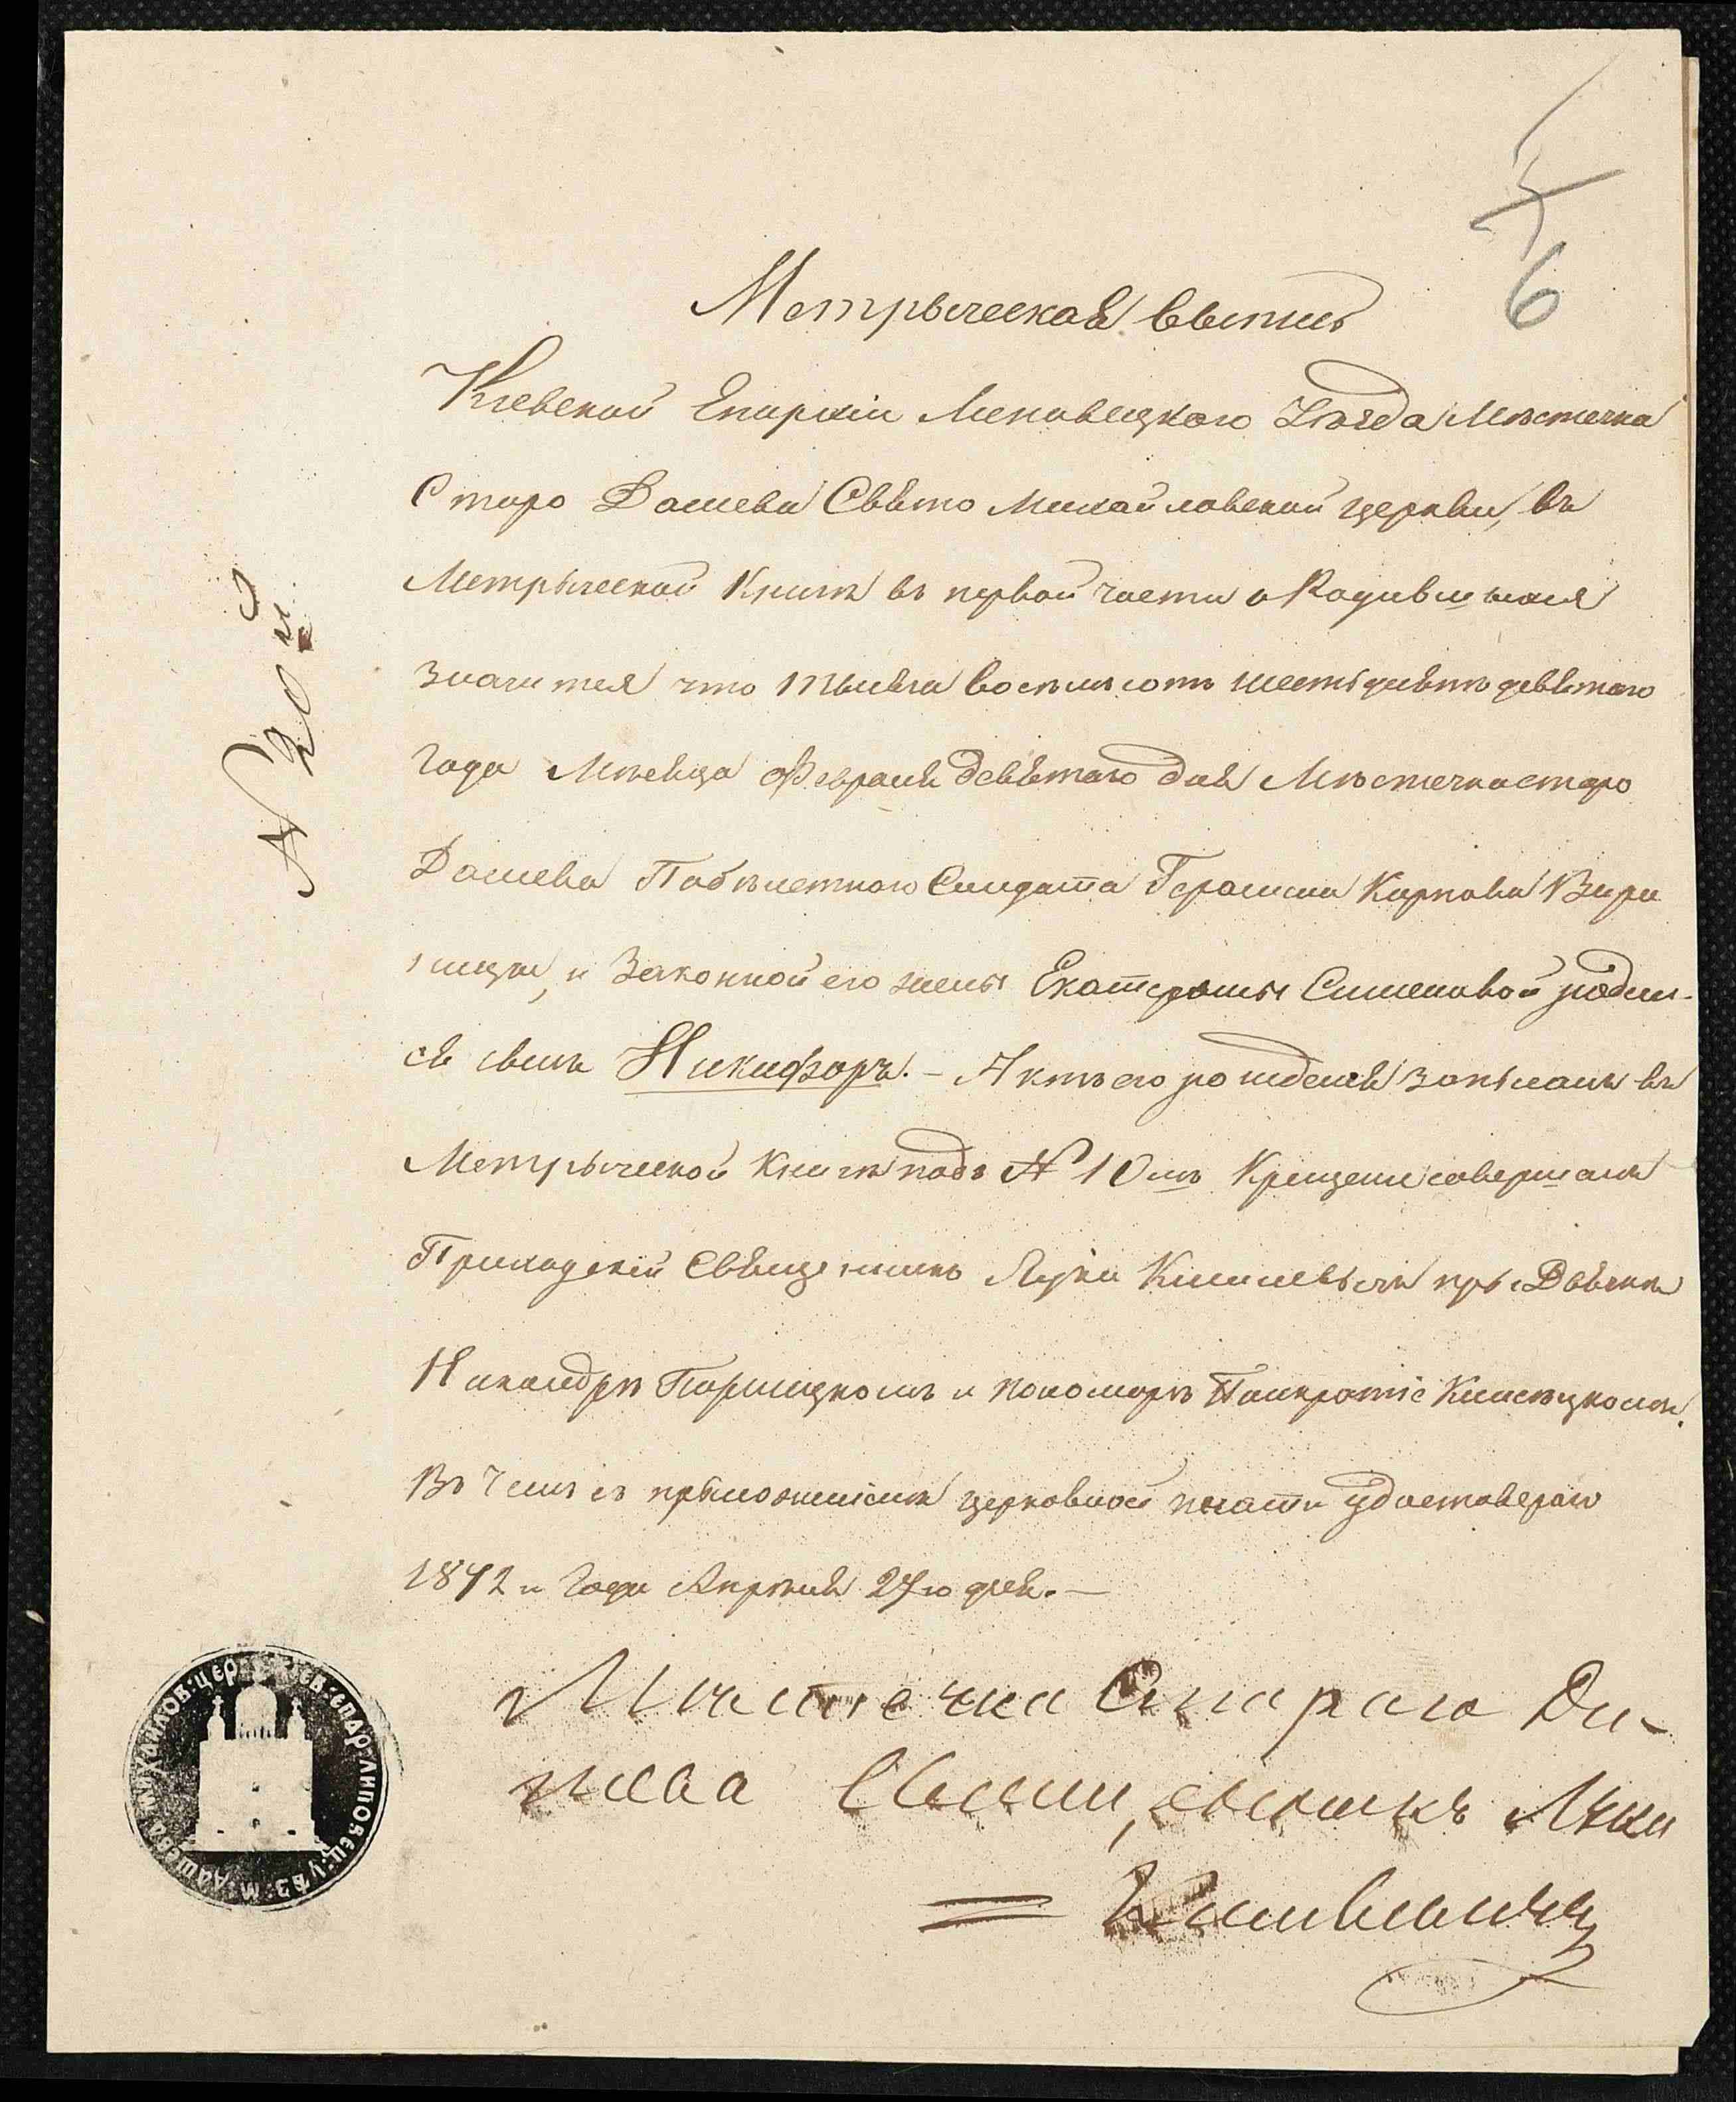 5
6
Метрическая выпись
Киевской Епархіи Липовецкого Уѣзда Мѣстечка
Старо Дашева Свято Михайловской церкви, въ
Метрической Книгѣ въ первой части о Родившихся
значится что тысяча восемьсотъ шестьдесятъ девятого
Года Мѣсяца Февраля девятого дня Мѣстечка старо
Дашева Побѣлетного Солдата Герасима Карпова
и Законной его жены Екатерины Симеоновой родил-
ся сынъ Никифоръ. – Актъ его рожденія записанъ въ
Метрической Книгѣ подъ № 10мъ Крещеніе совершалъ
Приходскій Священникъ Лука при Дьячкѣ
Никандрѣ и пономарѣ Панкратіе
Въ чемъ съ приложеніемъ церковной печати удостоверяю
1872 Года Апрѣля 27го дня. —
Мѣстечка Стараго Да-
шева Священникъ Лука
№ 20й
м. Дашева Михайлов. цер. Кіев. епар. Липовец. уѣз.